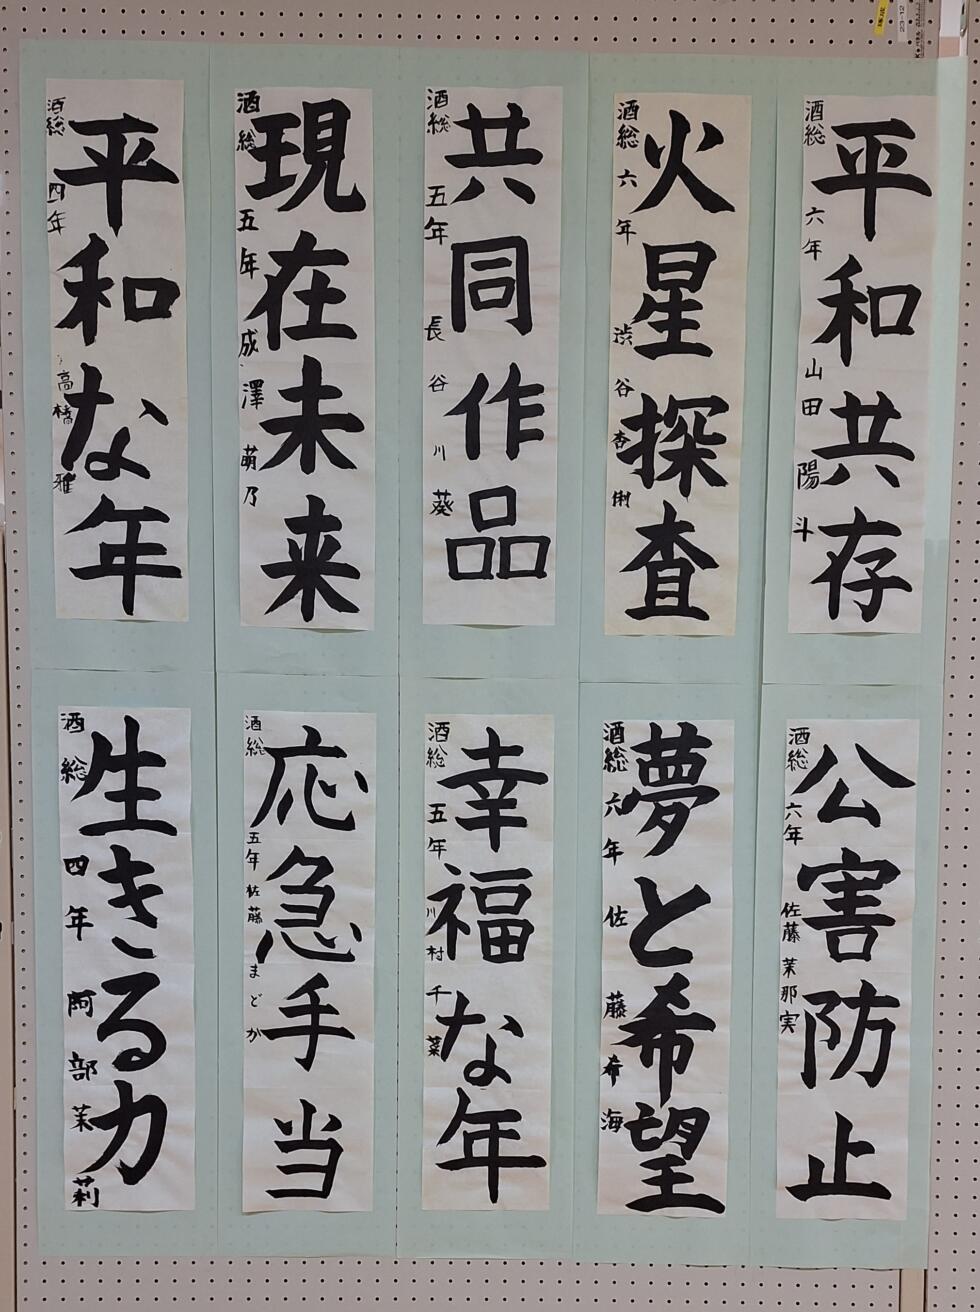 平和共存
酒総 六年 山田陽斗
火星探査
酒総 六年 渋谷杏俐
共同作品
酒総 五年 長谷川葵
現在未来
酒総 五年 成澤萌乃
平和な年
酒総 四年 高橋雅
公害防止
酒総 六年 佐藤茉那実
夢と希望
酒総 六年 佐藤希海
幸福な年
酒総 五年 川村千菜
応急手当
酒総 五年 佐藤まどか
生きる力
酒総 四年 阿部茉莉